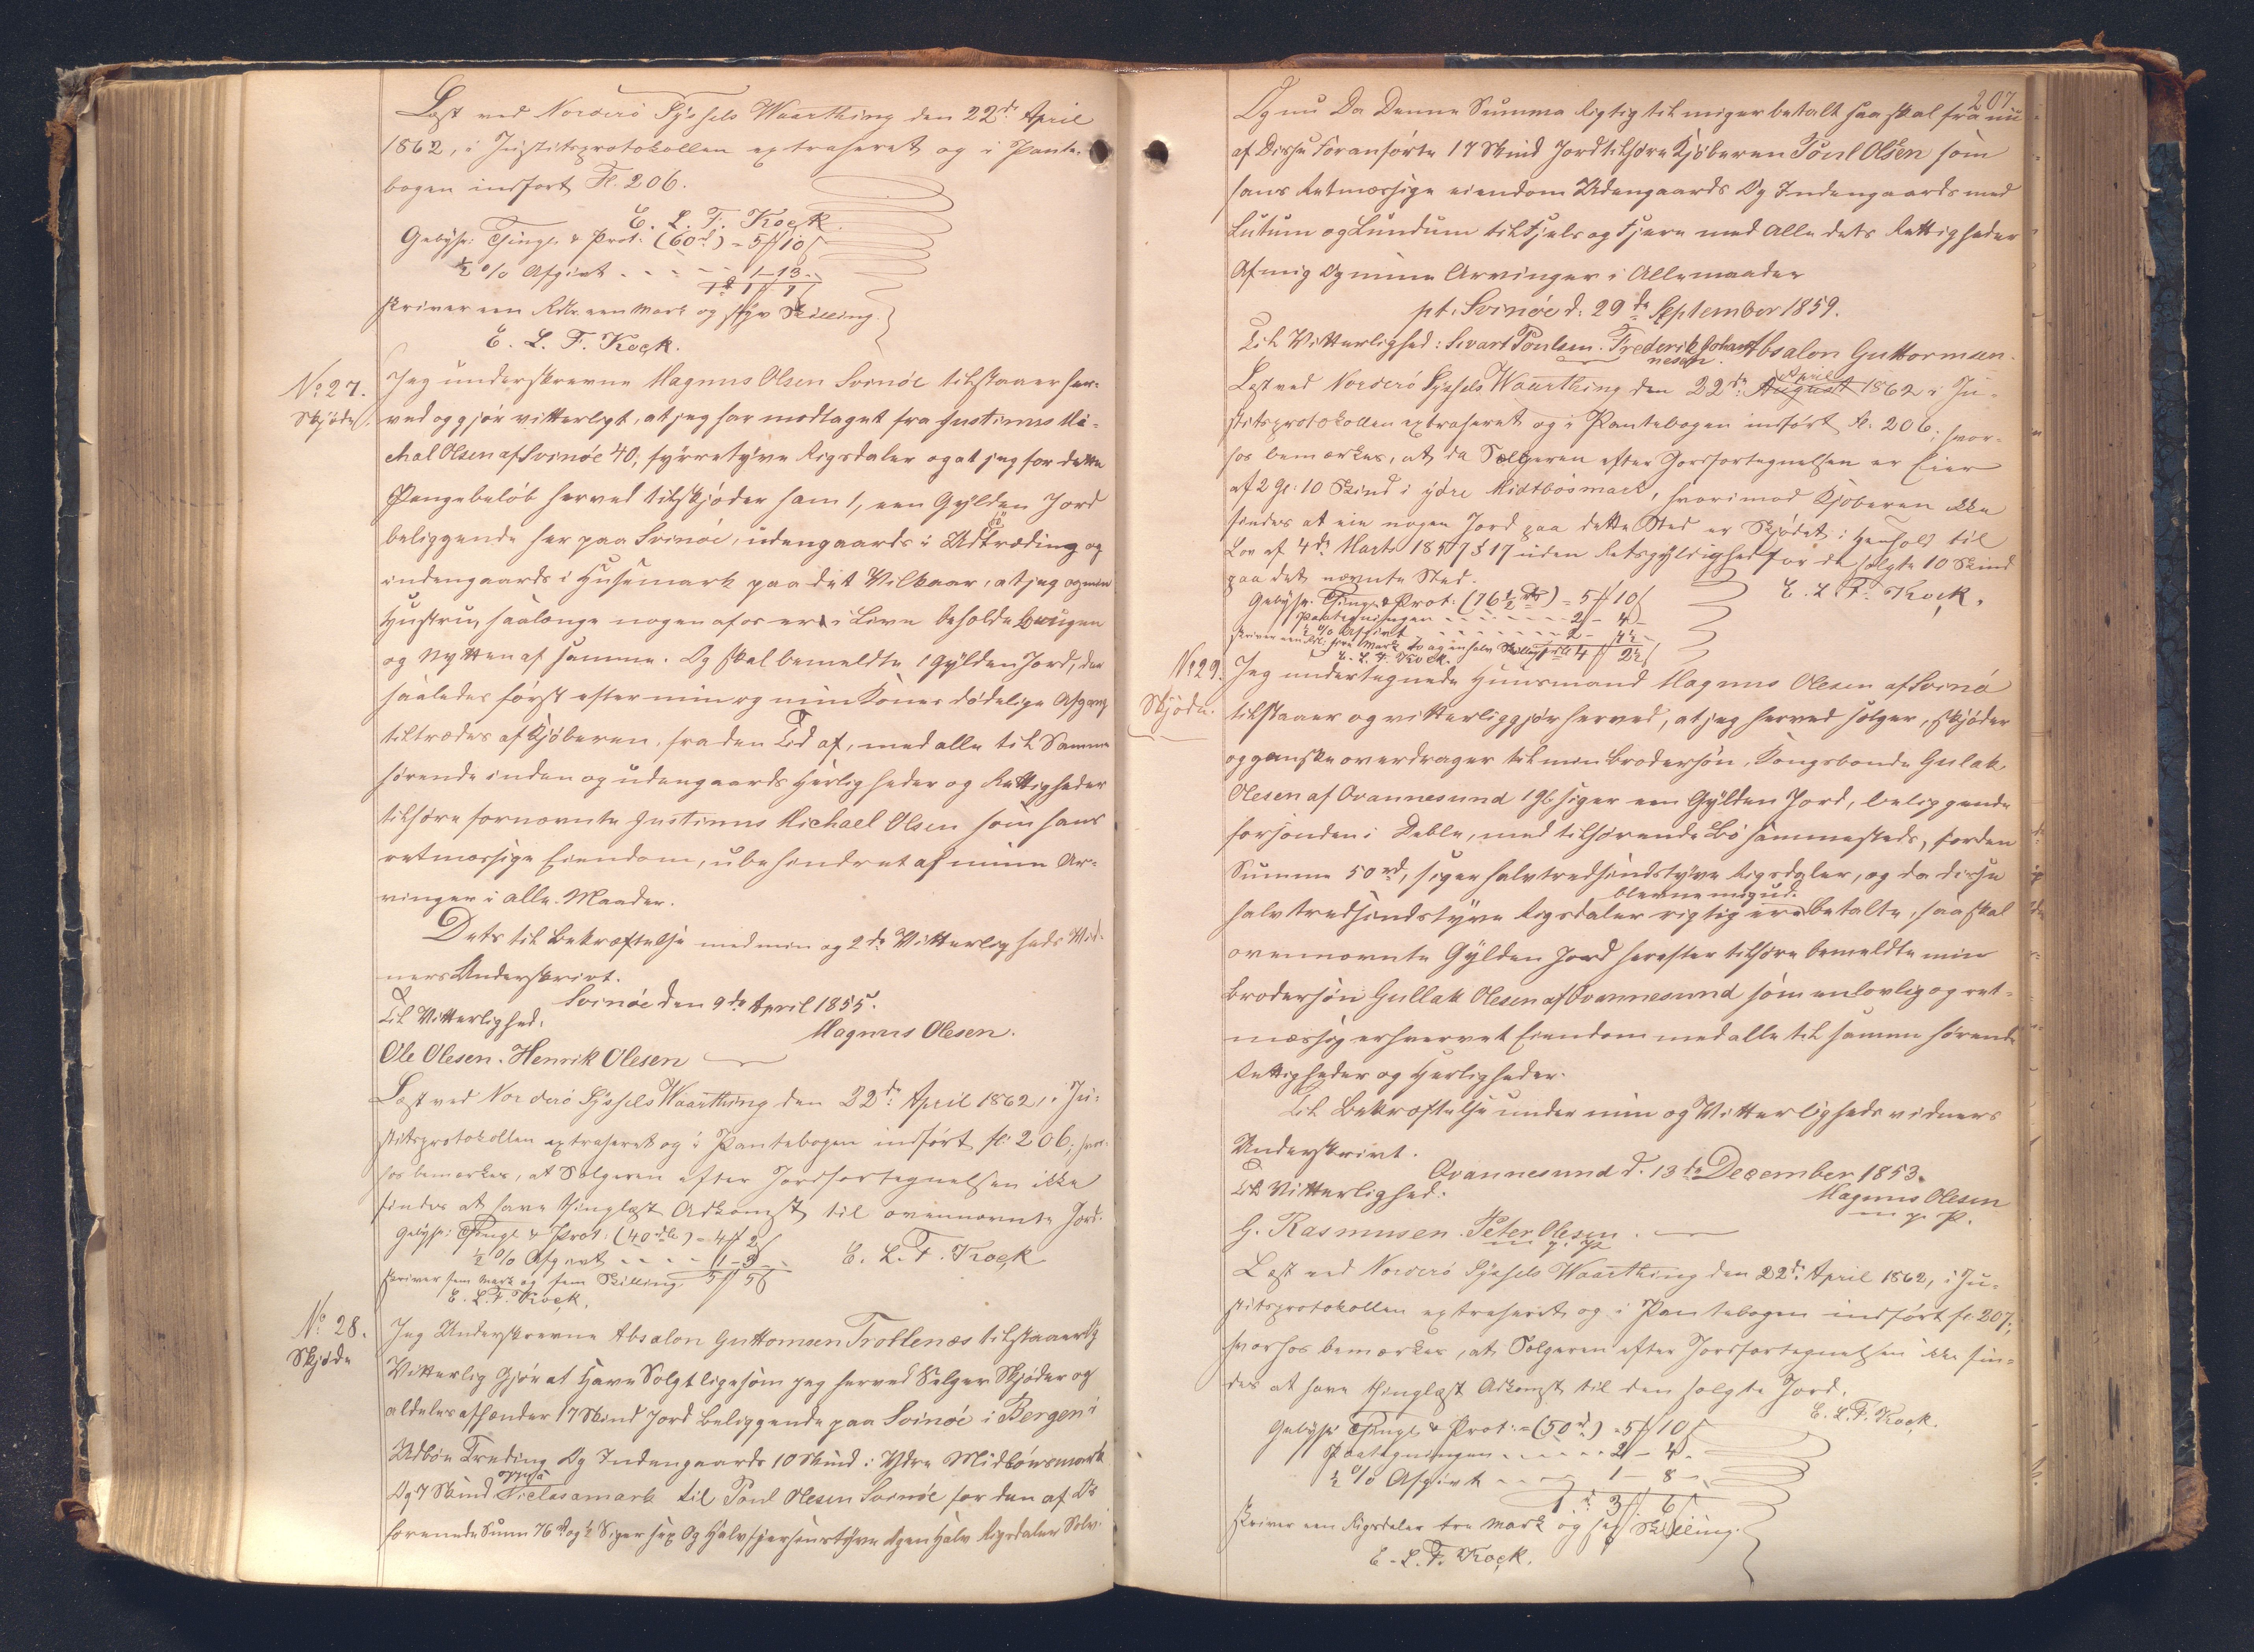 Læst ved Norderø Syssels Vaarthing den 22de April
1862, i Justitsprotokollen extraheret og i Pante-
bogen indført Fl. 206.
E. L. F. Kock.
Gebyhr: Thingl. & Prot: (60rd) = 5 ℳ 10 ß
½ % Afgivt - - - - 1 - 13 -
1 rd 1 ℳ 7 ß
skriver een Rdlr. een Mark og syv Skilling.
E. L. F. Kock.
No 27.
Skjøde.
Jeg underskrevne Magnus Olsen Svinøe tilstaaer her-
ved og gjør vitterligt, at jeg har modtaget fra Justinus Mi-
chal Olsen af Svinøe 40, fyrretyve Rigsdaler og at jeg for dette
Pengebeløb herved tilskjøder ham 1, een Gylden Jord
beliggende her paa Svinøe, udengaards i Udtræding og
indengaards i Husemark paa det Vilkaar, at jeg og min
Hustru, saalænge nogen af os er i Live beholde Brugen
og Nytten af samme. Og skal bemeldte 1 Gylden Jord, der
saaledes først efter min og min Kones dødelige Afgang
tiltrædes af Kjøberen, fra den Tid af, med alle til Samme
hørende inden og udengaards Herligheder og Rettigheder
tilhøre fornævnte Justinus Michael Olsen som hans
retmæssige Eiendom, ubehindret af mine Ar-
vinger i alle Maader.
Dets til Bekræftelse med min og 2de Vitterligheds Vid-
ners Underskrivt.
Svinøe den 9de April 1855.
Til Vitterlighed:
Magnus Olesen.
Ole Olesen. Henrik Olesen
Læst ved Norderø Syssels Vaarthing den 22de April 1862, i Ju-
stitsprotokollen extraheret og i Pantebogen indført fl: 206; hvor-
hos bemærkes, at Sælgeren efter Jordfortegnelsen ikke
findes at have thinglæst Adkomst til ovennævnte Jord.
Gebyhr: Thingl. & Prot: (40 rdlr) = 4 ℳ 2 ß
½ % Afgivt - - - - 1 - 3 -
E. L. F. Kock
skriver fem Mark og fem Skilling. 5 ℳ 5 ß
E. L. F. Kock.
No 28.
Skjøde
Jeg Underskrevne Absalon Guttomsen Trollenæs tilstaaer Og
Vitterlig Gjør at Have Solgt ligesom jeg herved Selger Skjøder og
aldeles afhænder 17 Skind Jord Beliggende paa Svinøe i Bergen i
Udbøe Treding Og Indengaards 10 Skind i Ydre Midbøesmark
Og 7 Skind oppa Niclasamark til Poul Olesen Svinøe for den af Os
forenede Sum 76 rd og ½ Siger sex Og Halvfjersenstyve Og en Halv Rigsdaler Sølv.
207.
Og nu Da Denne Summa Rigtig til mig er betalt saa skal fra nu
af Disse foranførte 17 Skind Jord tilhøre Kjøberen Poul Olsen som
hans Retmæssige eiendom Udengaards Og Indengaards med
Lutum og Lundum til Fjels og Fjere med Alle dets Rettigheder
Af mig Og mine Arvinger i Alle maader
pt. Svinøe d. 29de September 1859.
Til Vitterlighed: Sivart Poulsen. Frederik Johan- Absalon Guttormsen.
nesen.
Læst ved Norderø Syssels Vaarthing den 22de August April 1862 i Ju-
stitsprotokollen extraheret og i Pantebogen indført fl. 206; hvor-
hos bemærkes, at da Sælgeren efter Jordfortegnelsen er Eier
af 2 Gl: 10 Skind i ydre Midtbøsmark, hvorimod Kjøberen ikke
findes at eie nogen Jord paa dette Sted er Skjødet i Henhold til
Lov af 4de Marts 1857 § 17 uden Retsgyldighed for de solgte 10 Skind
paa det nævnte Sted.
E. L. F. Kock.
Gebyhr. Thingl. & Prot: (76½ rd) = 5 ℳ 10 ß
Paategningen - - - - - 2 - 4 -
½ % Afgivt - - - - - 2 - 4½ -
skriver een Rdl: fire Mark to og en halv Skilling 1 rd 4 ℳ 2½ ß
E. L. F. Kock.
No 29.
Skjøde.
Jeg undertegnede Huusmand Magnus Olesen af Svinø
tilstaaer og vitterliggjør herved, at jeg herved sælger, skjøder
og ganske overdrager til min Brodersøn, Kongsbonde Gulak
Olesen af Qvannesund 1 Gl. siger een Gylden Jord, beliggende
forsønden i Deble, med tilhørende Bø sammesteds, for den
Summe 50 rd, siger halvtredsindstyve Rigsdaler, og da disse
halvtredsindstyve Rigsdaler rigtig ere blevne mig ud- betalte, saa skal
ovennævnte Gylden Jord herefter tilhøre bemeldte min
Brodersøn Gullak Olesen af Qvannesund som en lovlig og ret-
mæssig erhvervet Eiendom med alle til samme hørende
Rettigheder og Herligheder.
Til Bekræftelse under min og Vitterligheds vidners
Underskrivt.
Qvannesund d. 13de December 1853.
Til Vitterlighed:
Magnus Olesen
m. p. P.
G. Rasmusen. Peter Olesen.
m. p. P.
Læst ved Norderø Syssels Vaarthing den 22de April 1862, i Ju-
stitsprotokollen extraheret og i Pantebogen indført fl. 207;
hvorhos bemærkes, at Sælgeren efter Jordfortegnelsen ikke fin-
des at have thinglæst Adkomst til den solgte Jord.
E. L. F. Kock.
Gebyhr Thingl. & Prot: = (50 rd) = 5 ℳ 10 ß
Paategningen - - - - 2 - 4 -
½ % Afgivt - - - 1 - 8 -
1 rd 3 ℳ 6 ß
skriver een Rigsdaler tre Mark og sex Skilling.
E. L. F. Kock.